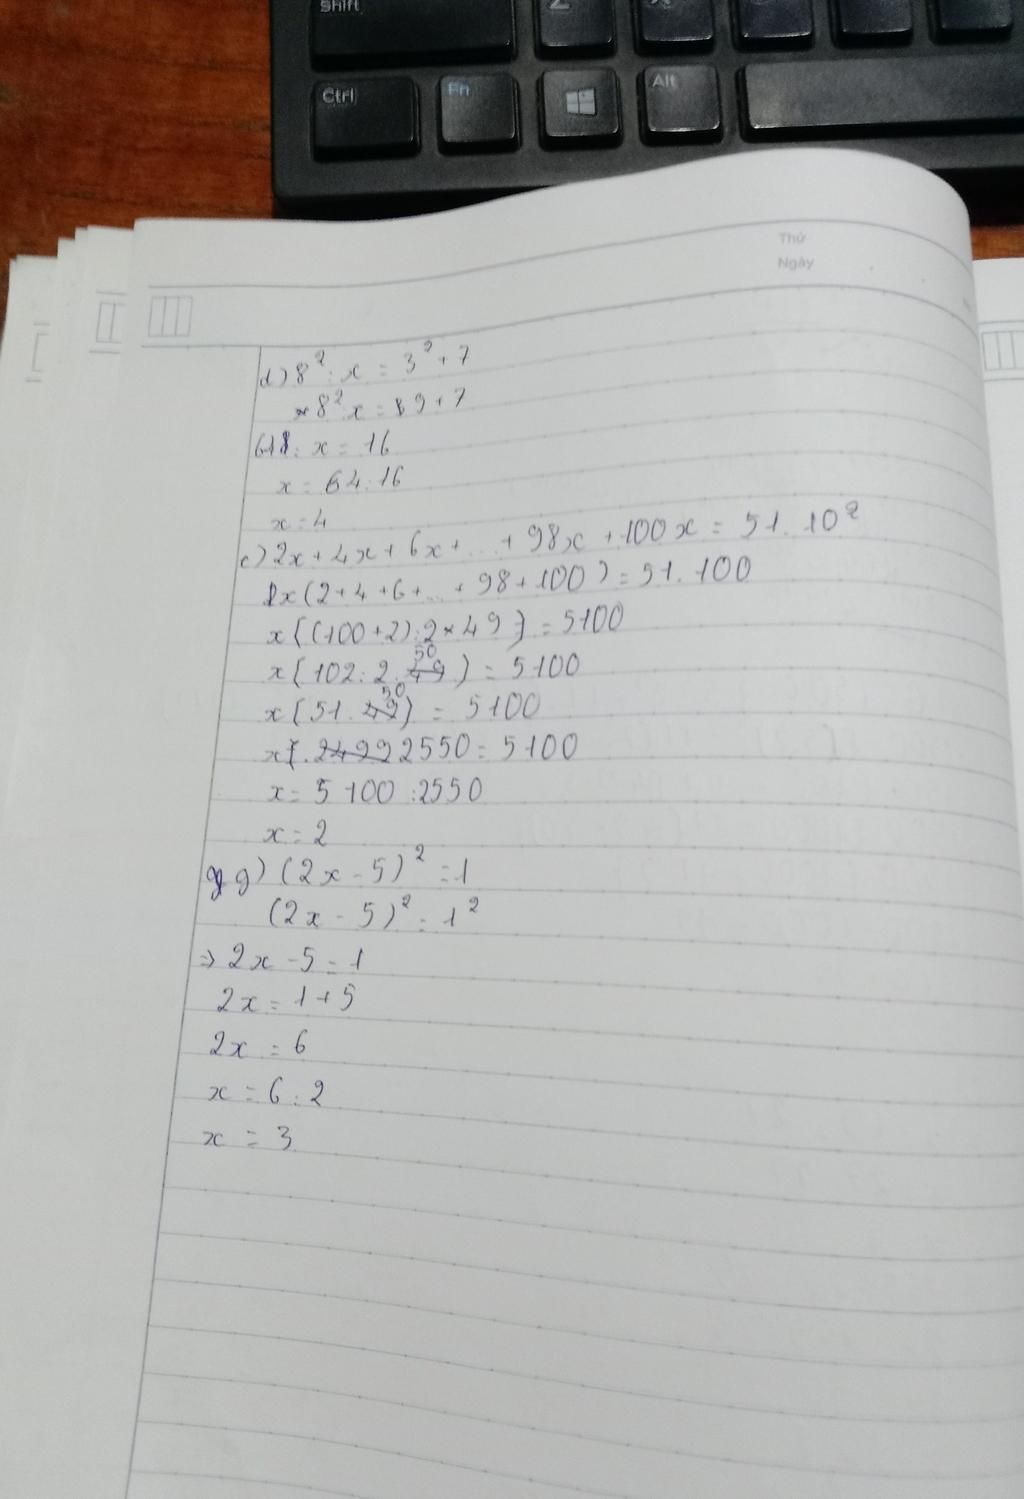 Shift
Z
X
Ctrl
Fn
Alt
Thứ
Ngày
d) 8² : x = 3² + 7
8² : x = 9 + 7
64 : x = 16
x = 64 : 16
x = 4
e) 2x + 4x + 6x + ... + 98x + 100x = 51 . 10²
x (2 + 4 + 6 + ... + 98 + 100) = 51 . 100
x ((100 + 2) : 2 × 49) = 5100
x (102 : 2 . 50) = 5100
x (51 . 50) = 5100
x . 2550 = 5100
x = 5100 : 2550
x = 2
g) (2x - 5)² = 1
(2x - 5)² = 1²
=> 2x - 5 = 1
2x = 1 + 5
2x = 6
x = 6 : 2
x = 3